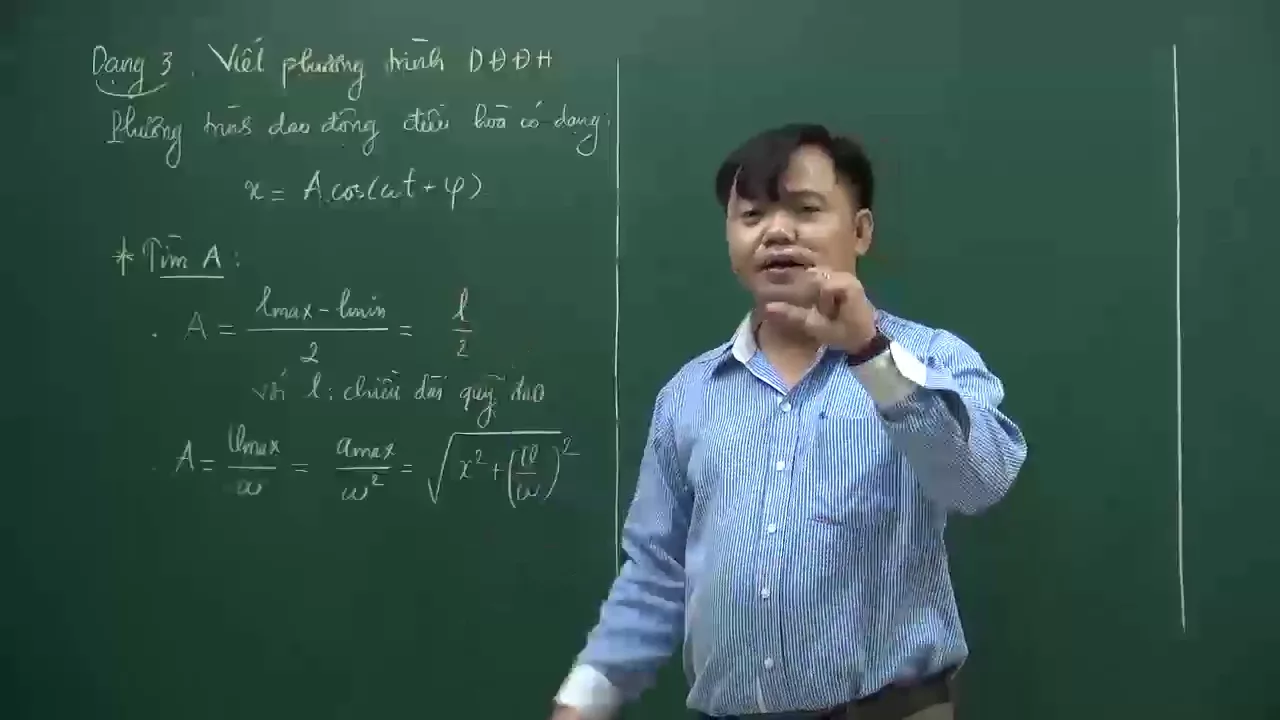 Dạng 3. Viết phương trình DĐĐH
Phương trình dao động điều hoà có dạng:
x = A cos(ωt + φ)
* Tìm A:
. A = (lmax - lmin)/2 = l/2
với l: chiều dài quỹ đạo
. A = vmax/ω = amax/ω² = √(x² + (v/ω)²)